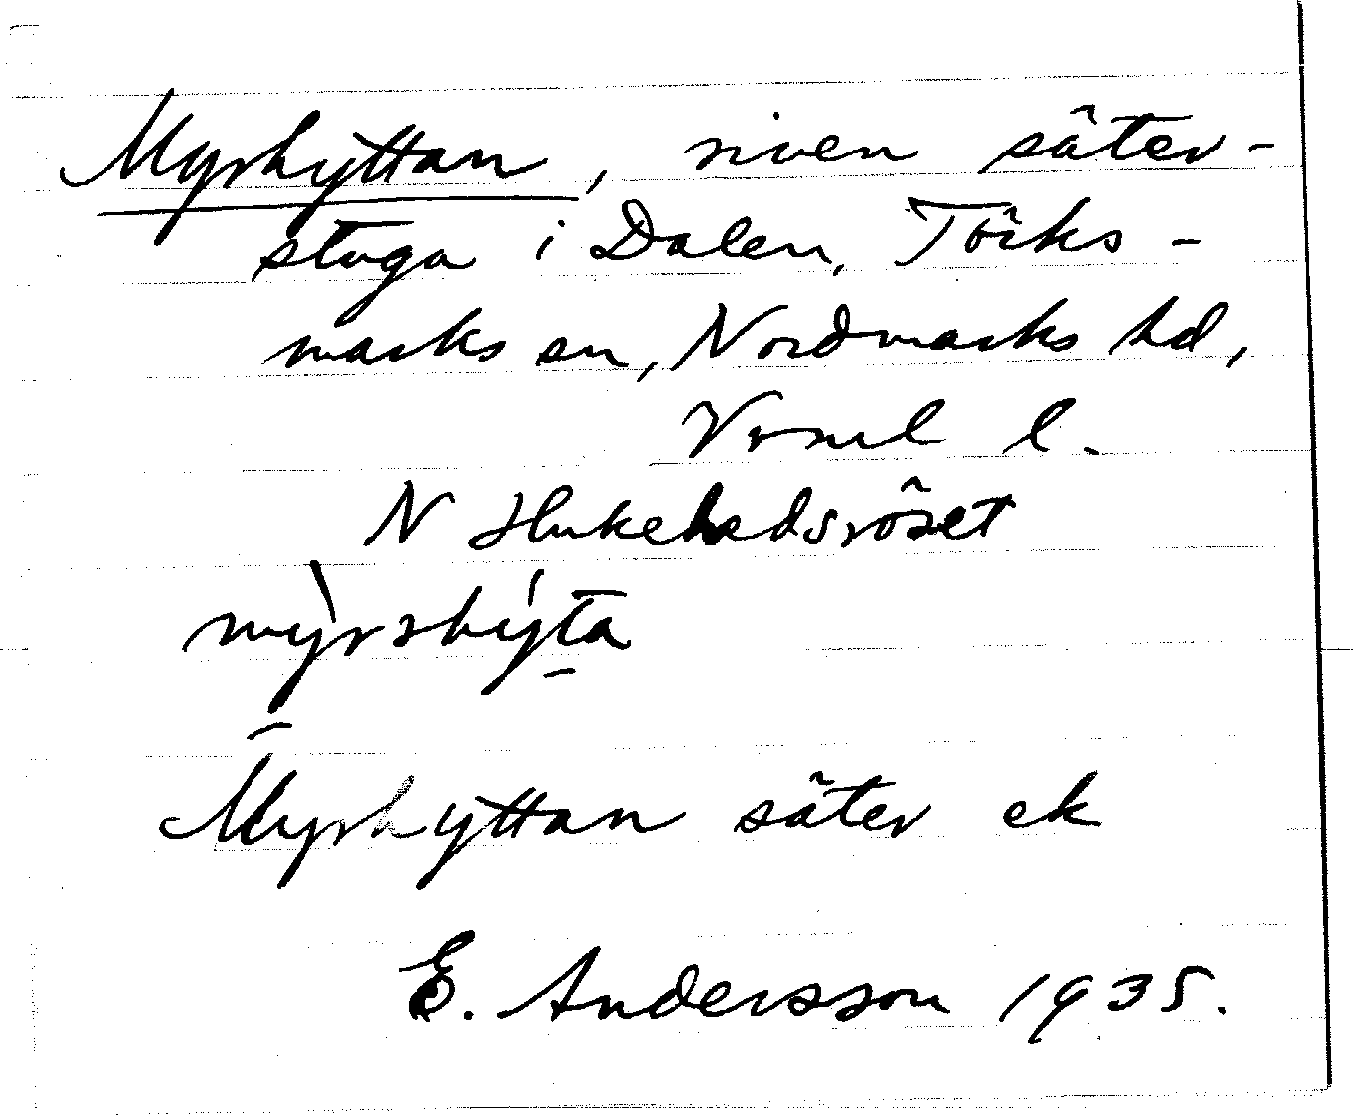 Myrhyttan, riven säter-
stuga i Dalen, Töcks-
marks sn, Nordmarks hd,
Värml l.
N Hukekedsröset
Myrhyttan säter ek
E. Andersson 1935.